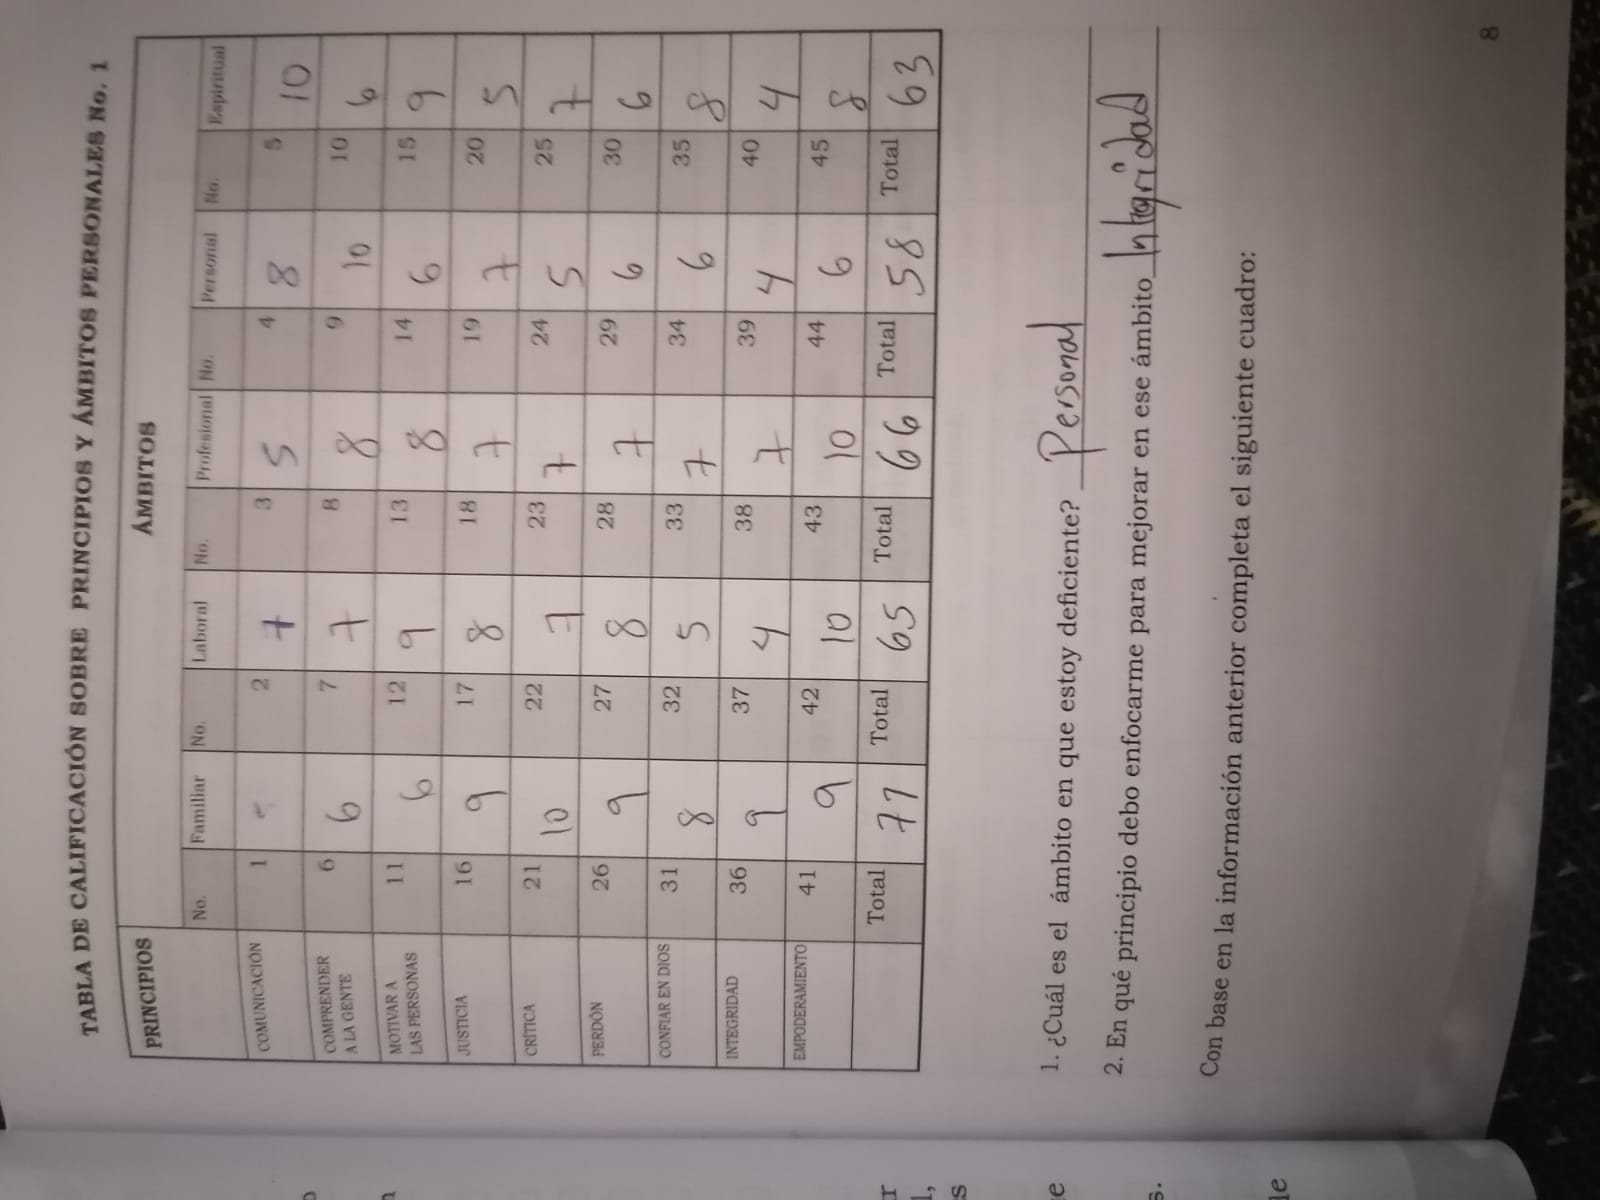 TABLA DE CALIFICACIÓN SOBRE PRINCIPIOS Y ÁMBITOS PERSONALES No. 1
PRINCIPIOS ÁMBITOS
No. Familiar No. Laboral No. Profesional No. Personal No. Espiritual
COMUNICACIÓN 1 2 7 3 5 4 8 5 10
COMPRENDER A LA GENTE 6 6 7 7 8 8 9 10 10 6
MOTIVAR A LAS PERSONAS 11 6 12 9 13 8 14 6 15 9
JUSTICIA 16 9 17 8 18 7 19 7 20 5
CRÍTICA 21 10 22 7 23 7 24 5 25 7
PERDÓN 26 9 27 8 28 7 29 6 30 6
CONFIAR EN DIOS 31 8 32 5 33 7 34 6 35 8
INTEGRIDAD 36 9 37 4 38 7 39 4 40 4
EMPODERAMIENTO 41 9 42 10 43 10 44 6 45 8
Total 77 Total 65 Total 66 Total 58 Total 63
1. ¿Cuál es el ámbito en que estoy deficiente? Personal
2. En qué principio debo enfocarme para mejorar en ese ámbito Integridad
Con base en la información anterior completa el siguiente cuadro:
8